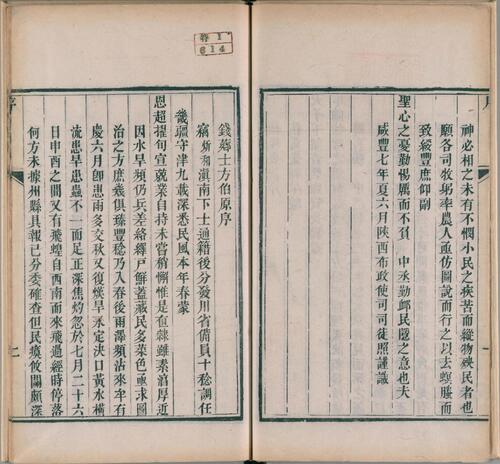 神必相之未有不憫小民之疾苦而縱物殃民者也
願各司牧躬率農人亟仿圖說而行之以去螟螣而
致綏豐庶仰副
聖心之憂勤惕厲而不負 中丞勤邮民隱之意也夫
咸豐七年夏六月陝西布政使司司徒照謹識
序
一
卷 1
614
錢蔣士方伯原序
竊炘和滇南下士通籍後分發川省備員十稔調任
畿疆守津九載深悉民風本年春蒙
恩超擢旬宣就業自持未嘗稍懈惟是直隸雖素沿厚近
因水旱頻仍兵差絡繹戶鮮蓋藏民多菜色亟求圖
治之方庶幾俱臻豐稔乃入春後雨澤頻沾來牟有
慶六月卽患雨多交秋又復嘆旱永定決口黃水橫
流患旱患蟲不一而足正深焦灼忽於七月二十六
日申酉之間又有飛蝗自西南而來飛過經時停落
何方未據州縣具報已分委確查但民瘼攸關頗深